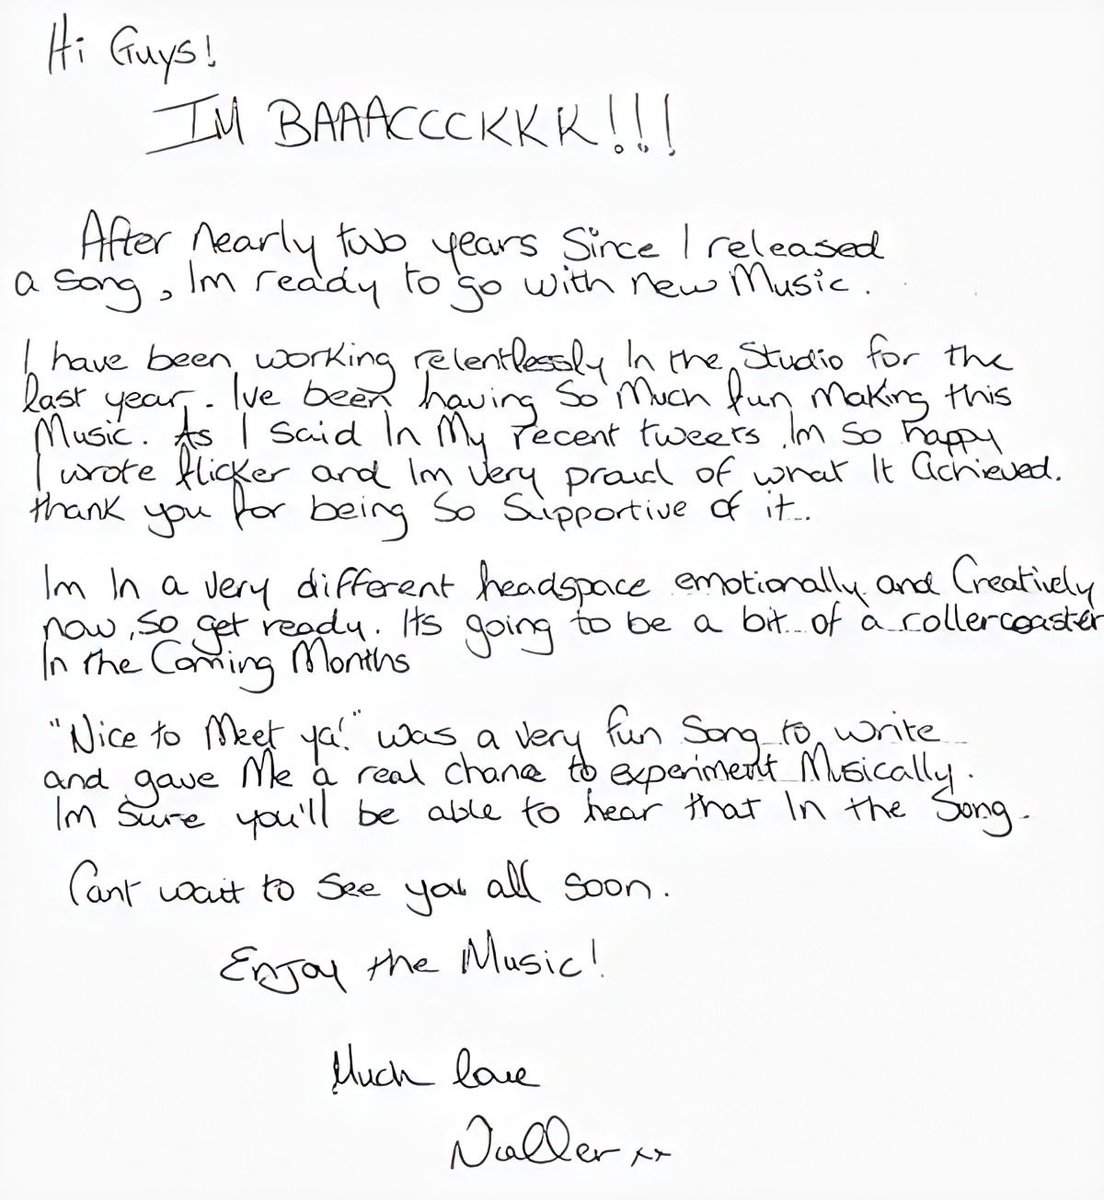 Hi Guys!
IM BAAACCCKKK!!!
After nearly two years Since I released
a song, Im ready to go with new Music.
I have been working relentlessly In the Studio for the
last year. Ive been having So Much fun Making this
Music. As I said In My recent tweets, Im so happy
I wrote flicker and Im very proud of what It achieved.
thank you for being So Supportive of it.
Im In a very different headspace emotionally and Creatively
now, so get ready. Its going to be a bit of a rollercoaster
In the Coming Months
"Nice to Meet ya!" was a very fun Song to write
and gave Me a real chance to experiment Musically.
Im Sure you'll be able to hear that In the Song.
Cant wait to see you all soon.
Enjoy the Music!
Much love
Nialler xx